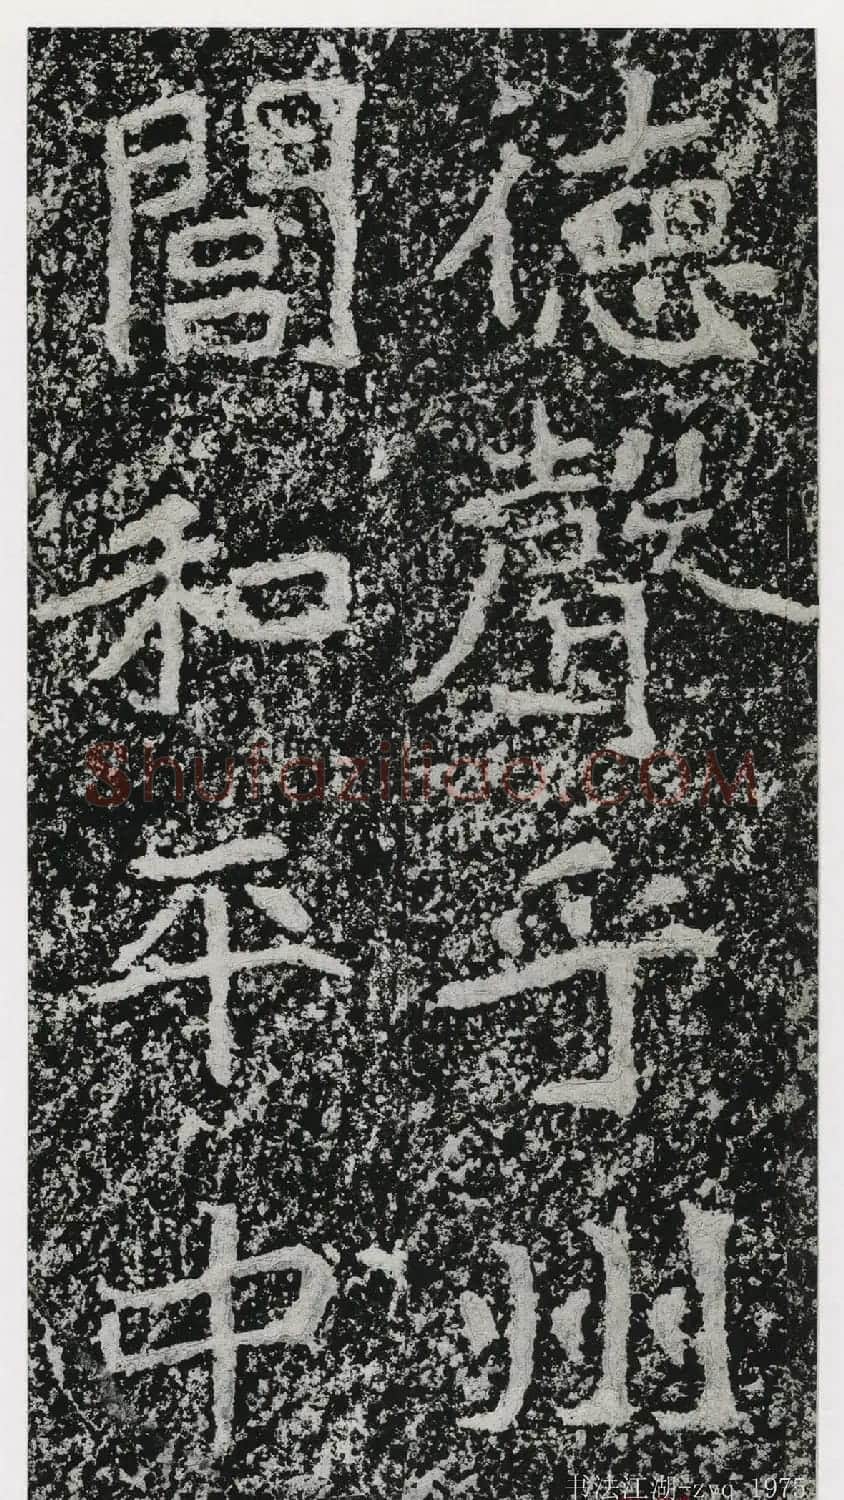 德聲乎州
閭和平中
Shufaziliao.COM
书法江湖-zyq_1975